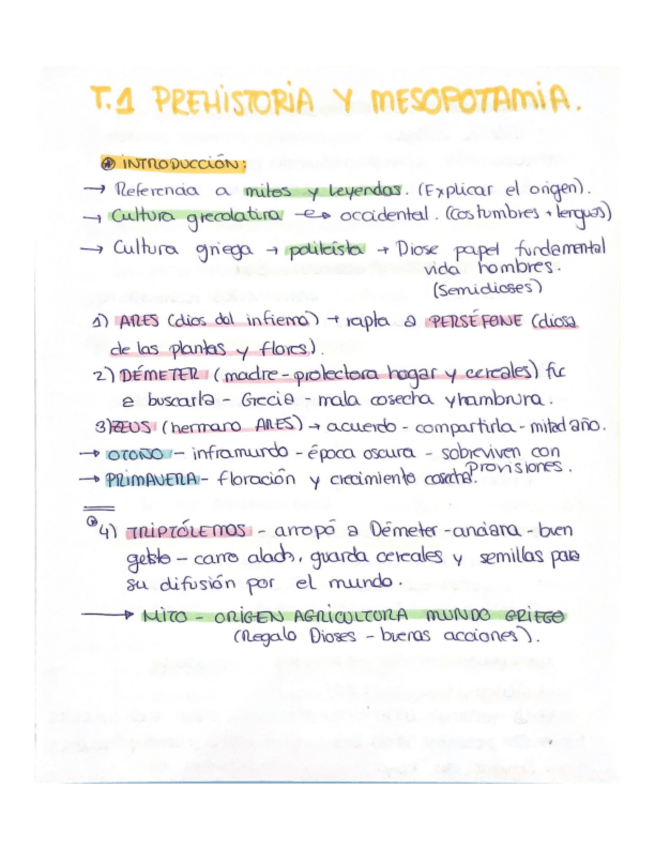 T.1 PREHISTORIA Y MESOPOTAMIA.
* INTRODUCCIÓN:
→ Referencia a mitos y leyendas. (Explicar el origen).
→ Cultura grecolatina → occidental. (costumbres + lenguas)
→ Cultura griega → politeísta → Diose papel fundamental
vida hombres.
(Semidioses)
1) ARES (dios del infierno) → rapta a PERSÉFONE (diosa
de las plantas y flores).
2) DÉMETER (madre - protectora hogar y cereales) fue
a buscarla - Grecia - mala cosecha y hambruna.
3) ZEUS (hermano ARES) → acuerdo - compartirla - mitad año.
→ OTOÑO - inframundo - época oscura - sobreviven con
provisiones.
→ PRIMAVERA - floración y crecimiento cosecha.
4) TRIPTÓLEMOS - arropó a Démeter - anciana - buen
gesto - carro alado, guarda cereales y semillas para
su difusión por el mundo.
→ MITO - ORIGEN AGRICULTURA MUNDO GRIEGO
(Regalo Dioses - buenas acciones).